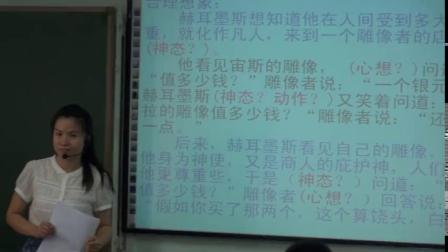 合理想象：
赫耳墨斯想知道他在人间受到多大
重，就化作凡人，来到一个雕像者的店
（神态？）。
他看见宙斯的雕像，（心想？）问道
“值多少钱？”雕像者说：“一个银元
赫耳墨斯（神态？动作？）又笑着问道：
拉的雕像值多少钱？”雕像者说：“还
一点。”
后来，赫耳墨斯看见自己的雕像，
他身为神使，又是商人的庇护神，人们
他更尊重些，于是（神态？）问道：
值多少钱？”雕像者（心想？）回答说
“假如你买了那两个，这个算饶头，白